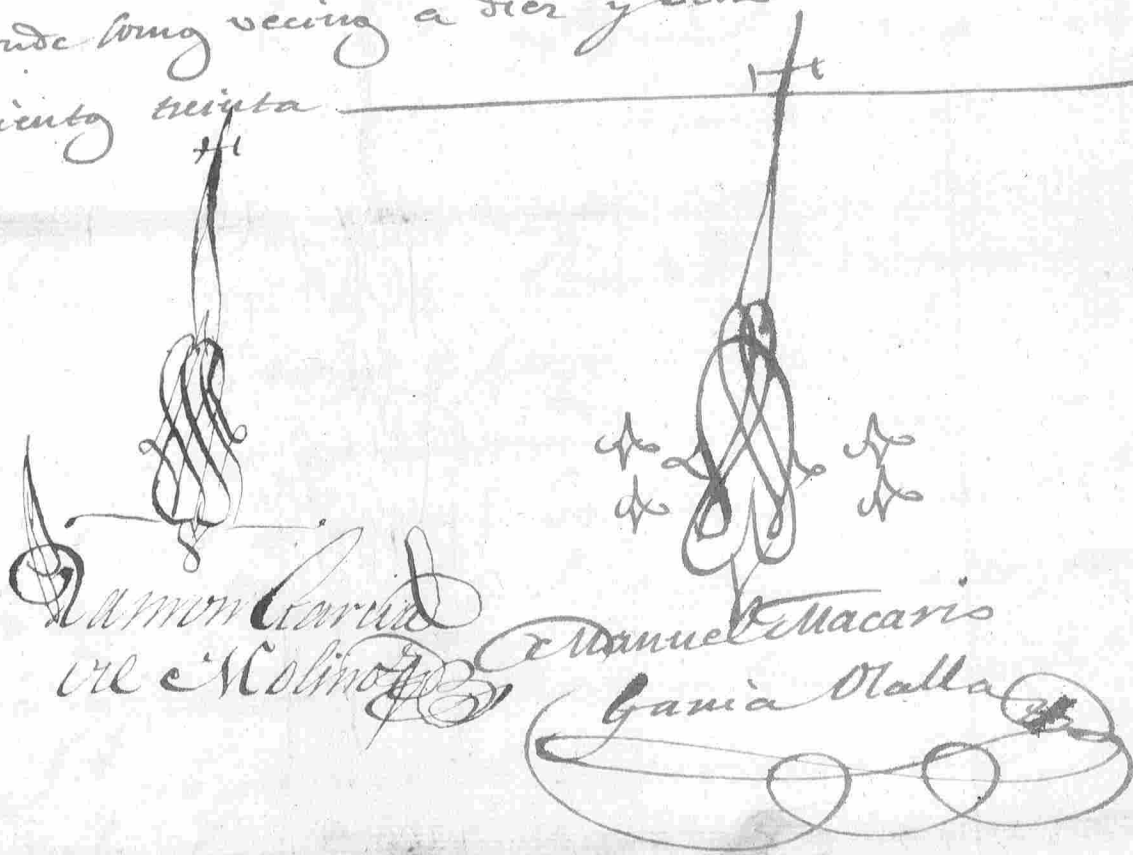 onde somos vecinos a diez y
cientos treinta
Ramon Garcia
del Molino
Manuel Macario
Garcia Olalla